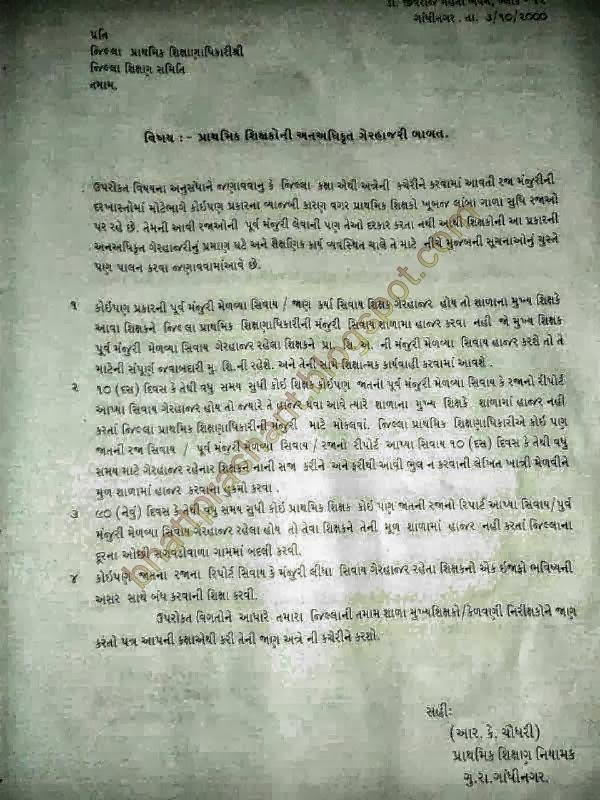 ડૉ. જીવરાજ મહેતા ભવન,
ગાંધીનગર. તા. ૩/૧૦/૨૦૦૦
પ્રતિ
જિલ્લા પ્રાથમિક શિક્ષાણાધિકારીશ્રી
જિલ્લા શિક્ષણ સમિતિ
તમામ.
વિષય :- પ્રાથમિક શિક્ષકોની અનઅધિકૃત ગેરહાજરી બાબત.
ઉપરોકત વિષયના અનુસંધાને જણાવવાનુ કે જિલ્લા કક્ષા એથી અત્રેની કચેરીને કરવામાં આવતી રજા મંજુરીની
દરખાસ્તોમાં મોટેભાગે કોઈપણ પ્રકારના વ્યાજબી કારણ વગર પ્રાથમિક શિક્ષકો ખૂબજ લાંબા ગાળા સુધિ રજાઓ
પર રહે છે. તેમની આવી રજાઓની પૂર્વ મંજુરી લેવાની પણ તેઓ દરકાર કરતા નથી આથી શિક્ષકોની આ પ્રકારની
અનઅધિકૃત ગેરહાજરીનું પ્રમાણ ઘટે અને શૈક્ષણિક કાર્ય વ્યવસ્થિત ચાલે તે માટે નીચે મુજબની સૂચનાઓનું ચુસ્ત
પણ પાલન કરવા જણાવવામાંઆવે છે.
૧ કોઈપણ પ્રકારની પૂર્વ મંજુરી મેળવ્યા સિવાય / જાણ કર્યા સિવાય શિક્ષક ગેરહાજર હોય તો શાળાના મુખ્ય શિક્ષકે
આવા શિક્ષકને જિલ્લા પ્રાથમિક શિક્ષણાધિકારીની મંજુરી સિવાય શાળામા હાજર કરવા નહી જો મુખ્ય શિક્ષક
પૂર્વ મંજુરી મેળવ્યા સિવાય ગેરહાજર રહેલા શિક્ષકને પ્રા. શિ. અ. ની મંજુરી મેળવ્યા સિવાય હાજર કરશે તો તે
માટેની સંપૂર્ણ જવાબદારી મુ. શિ.ની રહેશે. અને તેની સામે શિક્ષાત્મક કાર્યવાહી કરવામાં આવશે .
૨ ૧૦ (દસ) દિવસ કે તેથી વધુ સમય સુધી કોઈ શિક્ષક કોઈપણ જાતની પૂર્વ મંજુરી મેળવ્યા સિવાય કે રજાનો રીપોર્ટ
આપ્યા સિવાય ગેરહાજર હોય તો જ્યારે તે હાજર થવા આવે ત્યારે શાળાના મુખ્ય શિક્ષકે શાળામાં હાજર નહી
કરતાં જિલ્લા પ્રાથમિક શિક્ષણાધિકારીની મંજુરી માટે મોકલવાં. જિલ્લા પ્રાથમિક શિક્ષણાધિકારીએ કોઈ પણ
જાતની રજા સિવાય / પૂર્વ મંજુરી મેળવ્યા સિવાય / રજાનો રીપોર્ટ આપ્યા સિવાય ૧૦ (દસ) દિવસ કે તેથી વધુ
સમય માટે ગેરહાજર રહેનાર શિક્ષકને નાની સજા કરીને અને ફરીથી આવી ભુલ ન કરવાની લેખિત ખાત્રી મેળવીને
મુળ શાળામાં હાજર કરવાના હુકમો કરવા .
૩ ૯૦ (નેવું) દિવસ કે તેથી વધુ સમય સુધી કોઈ પ્રાથમિક શિક્ષક કોઈ પણ જાતની રજાનો રિપોર્ટ આપ્યા સિવાય/પુર્વ
મંજુરી મેળવ્યા સિવાય ગેરહાજર રહેલા હોય તો તેવા શિક્ષકને તેની મૂળ શાળામાં હાજર નહી કરતાં જિલ્લાના
દૂરના ઓછી સગવડોવાળા ગામમાં બદલી કરવી.
૪ કોઈપણ જાતના રજાના રિપોર્ટ સિવાય કે મંજુરી લીધા સિવાય ગેરહાજર રહેતા શિક્ષકનો એક ઈજાફો ભવિષ્યની
અસર સાથે બંધ કરવાની શિક્ષા કરવી.
ઉપરોકત વિગતોને આધારે તમારા જિલ્લાની તમામ શાળા મુખ્યશિક્ષકો/કેળવણી નિરીક્ષકોને જાણ
કરતો પત્ર આપની કક્ષાએથી કરી તેની જાણ અત્રે ની કચેરીને કરશો.
સહી:
(આર. કે. ચૌધરી)
પ્રાથમિક શિક્ષણ નિયામક
ગુ.રા.ગાંધીનગર.
bhattprashant.blogspot.com